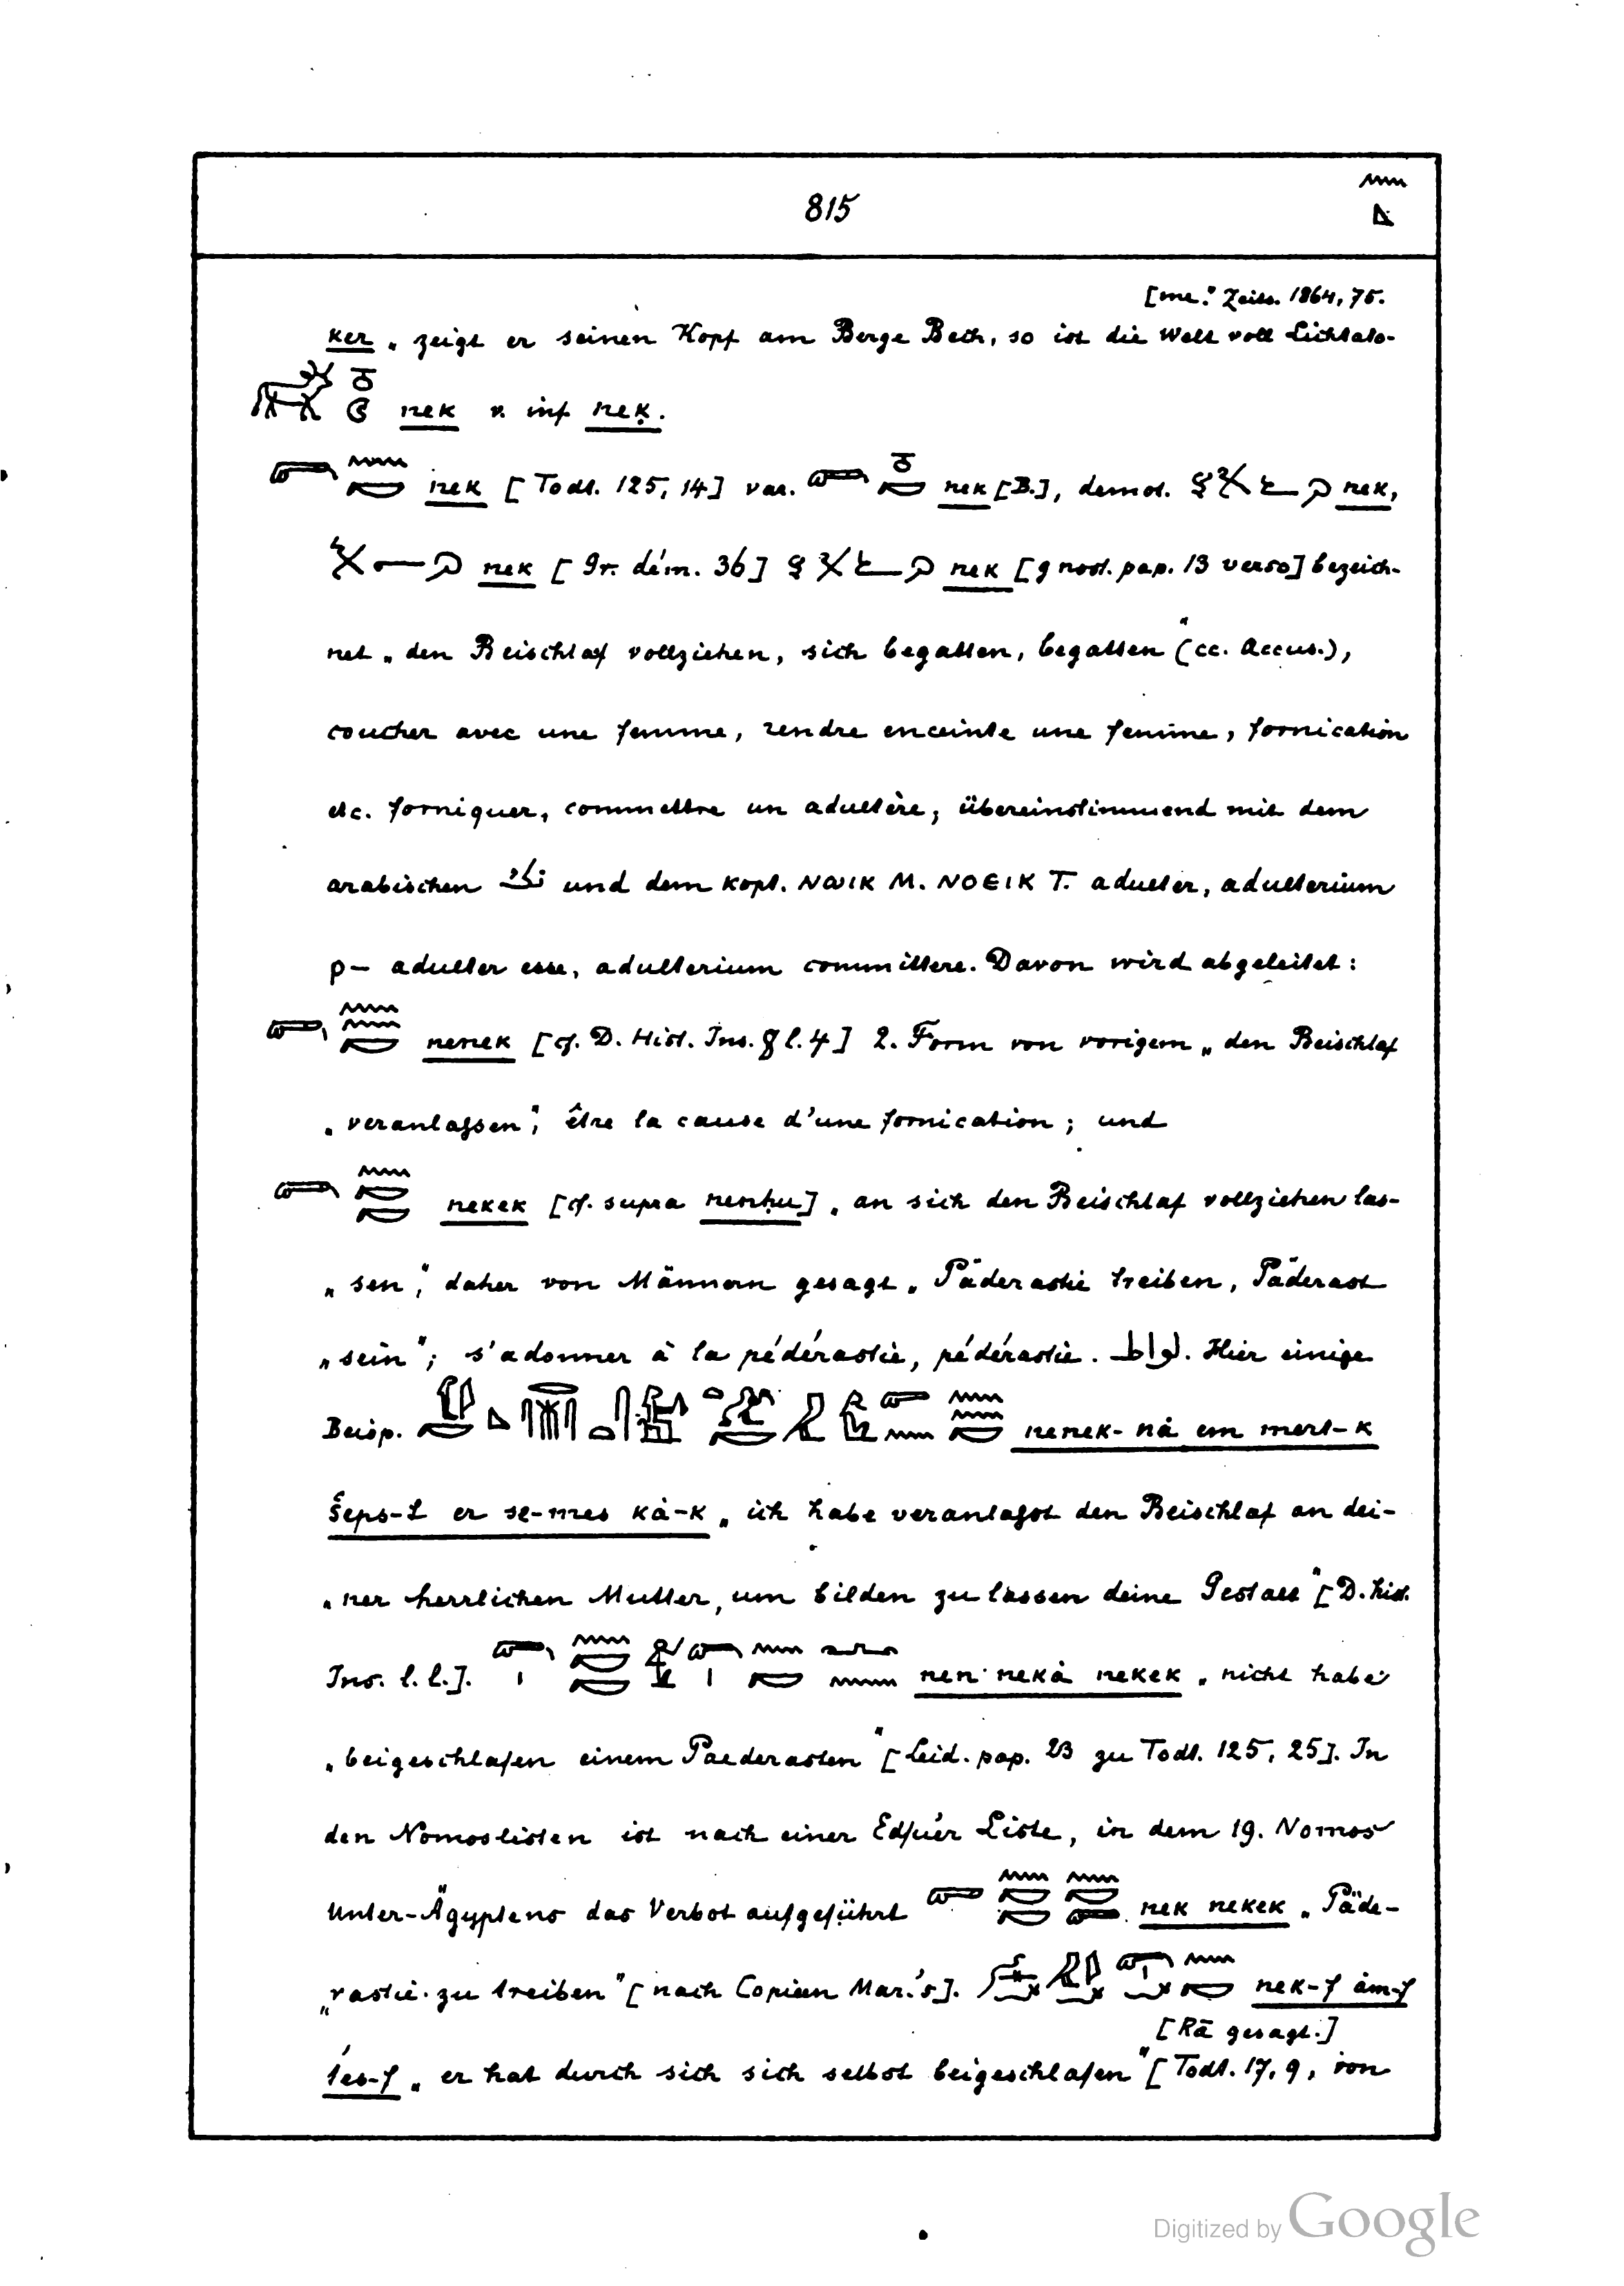 815
[me." Zeits. 1864, 75.
ker „ zeigt er seinen Kopf am Berge Bech, so ist die Welt voll Lichtato-
nek v. inf neḳ.
nek [Todt. 125, 14] var. nek [B.], demot. nek,
nek [Gr. dém. 36] nek [gnost. pap. 13 verso] bezeich-
net „ den Beischlaf vollziehen, sich begatten, begatten" (cc. Accus.),
coucher avec une femme, rendre enceinte une femme, fornication
etc. forniquer, commettre un adultère, übereinstimmend mit dem
arabischen und dem kopt. ⲚⲰⲒⲔ M. ⲚⲞⲈⲒⲔ T. adulter, adulterium
ⲣ– adulter esse, adulterium committere. Davon wird abgeleitet:
nenek [cf. D. Hist. Ins. l. 4] 2. Form von vorigem „ den Beischlaf
„ veranlassen", être la cause d'une fornication; und
nekek [cf. supra nenḥu] „ an sich den Beischlaf vollziehen las-
„ sen", daher von Männern gesagt „ Päderastie treiben, Päderast
„ sein"; s'adonner à la pédérastie, pédérastie. لواط. Hier einige
Beisp. nenek-nȧ em mert-k
šeps-t er se-mes kȧ-k „ ich habe veranlasst den Beischlaf an dei-
„ ner herrlichen Mutter, um bilden zu lassen deine Gestalt" [D. hist.
Ins. l. l.]. nen nekȧ nekek „ nicht habe
„ beigeschlafen einem Paederasten" [Leid. pap. zu Todt. 125, 25]. In
den Nomoslisten ist nach einer Edfuer Liste, in dem 19. Nomos
Unter-Ägyptens das Verbot aufgeführt nek nekek „ Päde-
„ rastie zu treiben" [nach Copieen Mar.'s]. nek-f ȧm-f
[Rā gesagt.]
tes-f „ er hat durch sich sich selbst beigeschlafen" [Todt. 17, 9, von
Digitized by Google